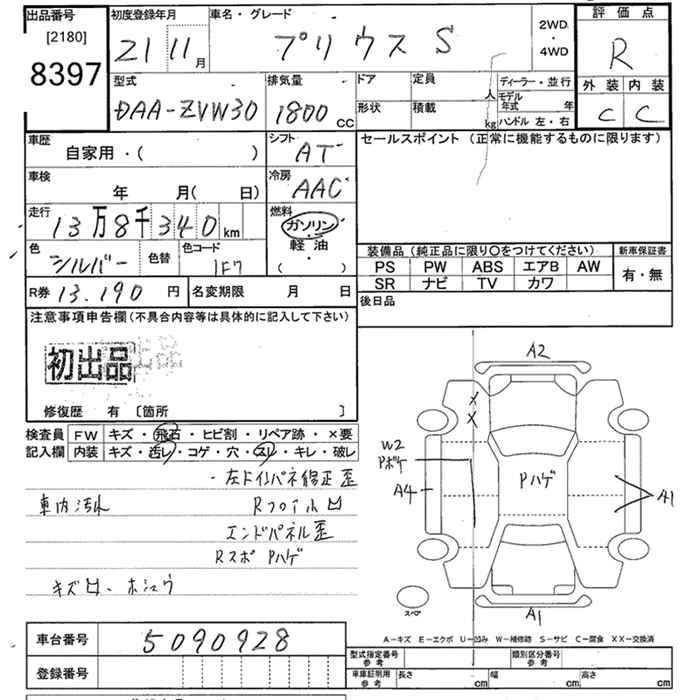 出品番号 [2180] 8397
初度登録年月 21 11月
車名・グレード プリウス S
2WD・4WD
評価点 R
外装 内装
C C
型式 DAA-ZVW30
排気量 1800 CC
ドア 定員 人
形状 積載 kg
ディーラー・並行
モデル年式 年
ハンドル 左・右
車歴 自家用・( )
シフト AT
セールスポイント (正常に機能するものに限ります)
車検 年 月( 日)
冷房 AAC
走行 13万8千340km
燃料 ガソリン・軽油 ( )
色 シルバー 色替 色コード 1F7
装備品(純正品に限り○をつけてください) 新車保証書
PS PW ABS エアB AW 有・無
SR ナビ TV カワ
R券 13.190 円 名変期限 月 日
後日品
注意事項申告欄(不具合内容等は具体的に記入して下さい)
初出品
修復歴 有 〔箇所 〕
検査員記入欄 FW キズ・飛石・ヒビ割・リペア跡・×要
内装 キズ・汚レ・コゲ・穴・スレ・キレ・破レ
・左ドインパネ修正歪
車内汚れ Rフロアハ凹
エンドパネル歪
Rスポ Pハゲ
キズ凹・ホシュウ
A2
W2
Pボケ
Pハゲ
A4
A1
A1
スペア
A−キズ E−エクボ U−凹み W−補修跡 S−サビ C−腐食 XX−交換済
車台番号 5090928
型式指定番号 参考 類別区分番号 参考
登録番号
車庫証明用 参考 長さ cm 幅 cm 高さ cm